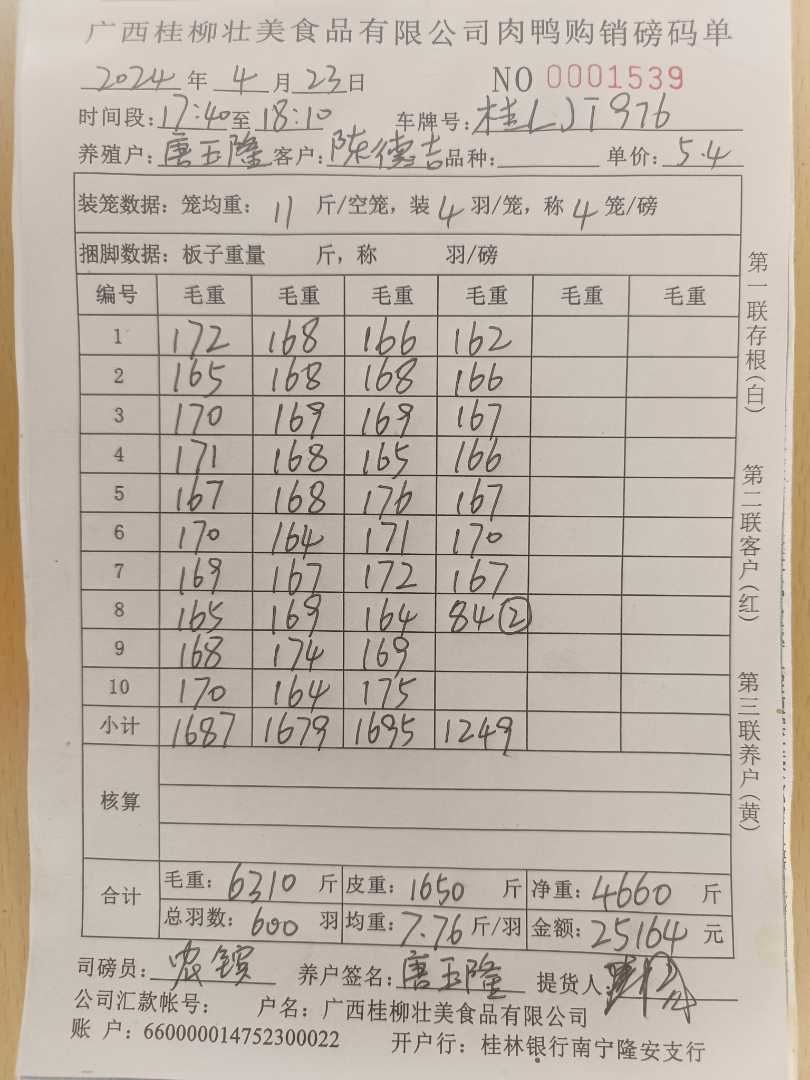 广西桂柳壮美食品有限公司肉鸭购销磅码单
2024 年 4 月 23 日 NO 0001539
时间段：17:40 至 18:10 车牌号：桂LJT976
养殖户：唐玉隆 客户：陈德吉 品种： 单价：5.4
装笼数据：笼均重：11 斤/空笼，装 4 羽/笼，称 4 笼/磅
捆脚数据：板子重量 斤，称 羽/磅
编号 毛重 毛重 毛重 毛重 毛重 毛重
1 172 168 166 162
2 165 168 168 166
3 170 169 169 167
4 171 168 165 166
5 167 168 176 167
6 170 164 171 170
7 169 167 172 167
8 165 169 164 84 ②
9 168 174 169
10 170 164 175
小计 1687 1679 1695 1249
核算
合计 毛重：6310 斤 皮重：1650 斤 净重：4660 斤
总羽数：600 羽 均重：7.76 斤/羽 金额：25164 元
司磅员：农镔 养户签名：唐玉隆 提货人：
公司汇款帐号： 户名：广西桂柳壮美食品有限公司
账 户：660000014752300022 开户行：桂林银行南宁隆安支行
第一联存根（白） 第二联客户（红） 第三联养户（黄）